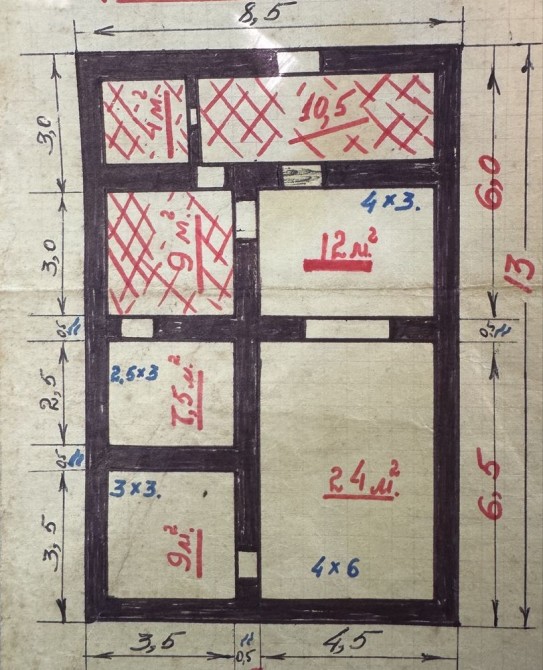 8,5
4 м.²
10,5
3,0
6,0
4×3.
12 м.²
9 м.²
3,0
13
0,5 м
0,5 м
2,5×3
7,5 м.²
2,5
0,5 м
24 м.²
6,5
3×3.
9 м.²
3,5
4×6
3,5
0,5
4,5